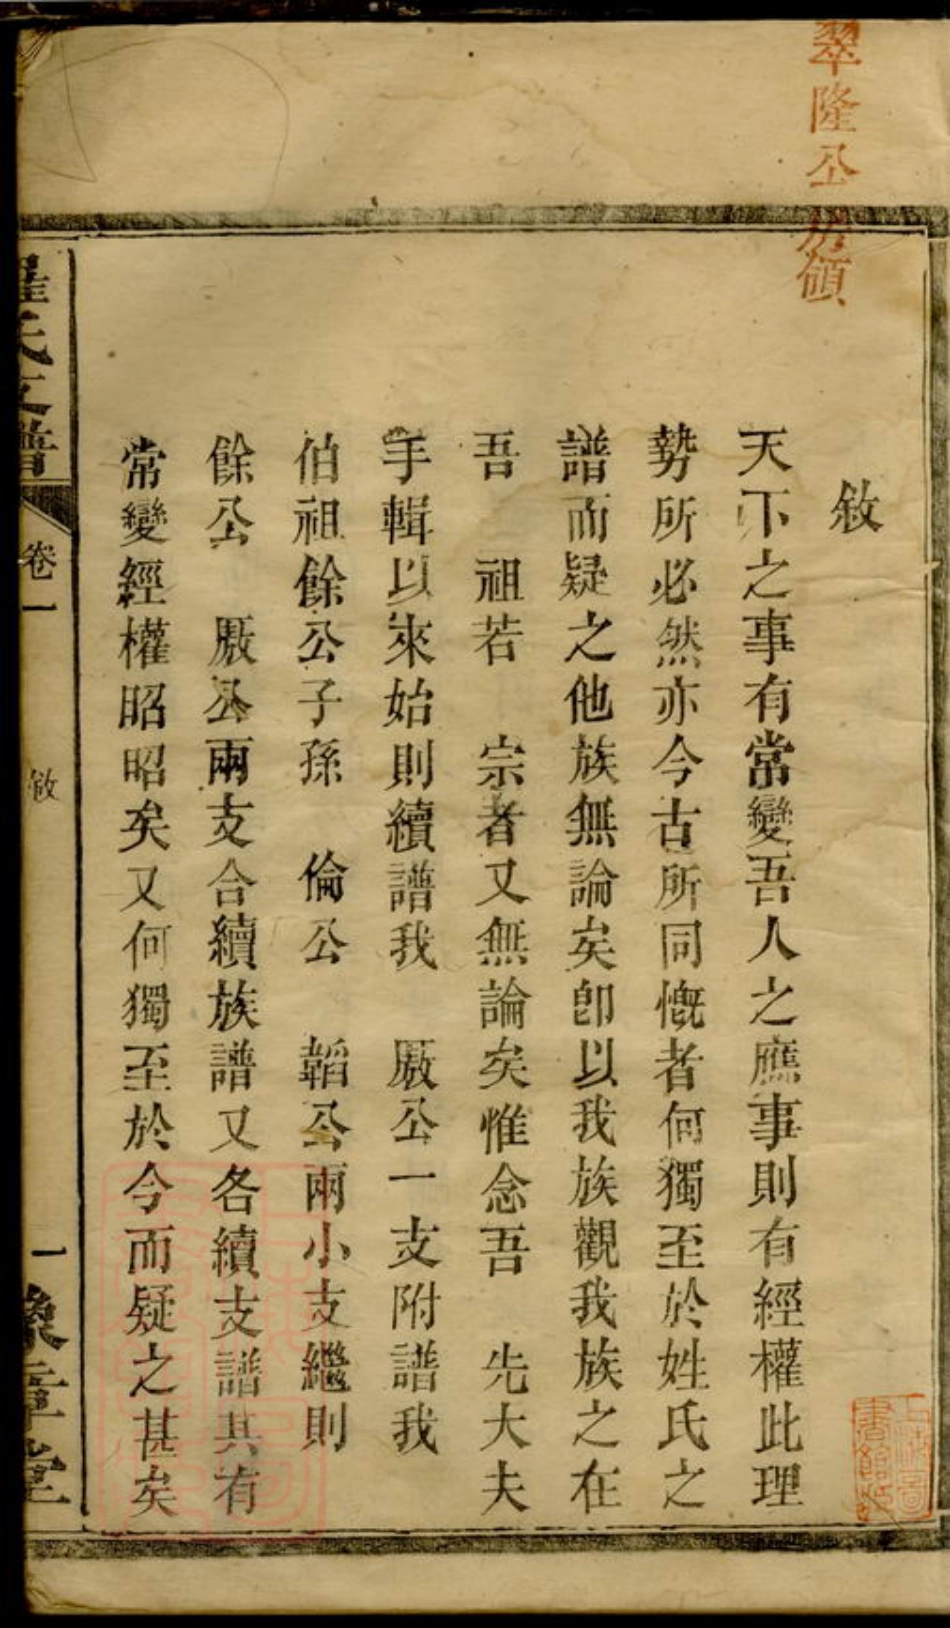 翠隆公房領
敘
天下之事有常變吾人之應事則有經權此理
勢所必然亦今古所同慨者何獨至於姓氏之
譜而疑之他族無論矣卽以我族觀我族之在
吾 祖若 宗者又無論矣惟念吾 先大夫
手輯以來始則續譜我 厫公一支附譜我
伯祖餘公子孫 倫公 韜公兩小支繼則
餘公 厫公兩支合續族譜又各續支譜其有
常變經權昭昭矣又何獨至於今而疑之甚矣
羅氏支譜 卷一 敘 一 豫章堂
上海圖書館藏